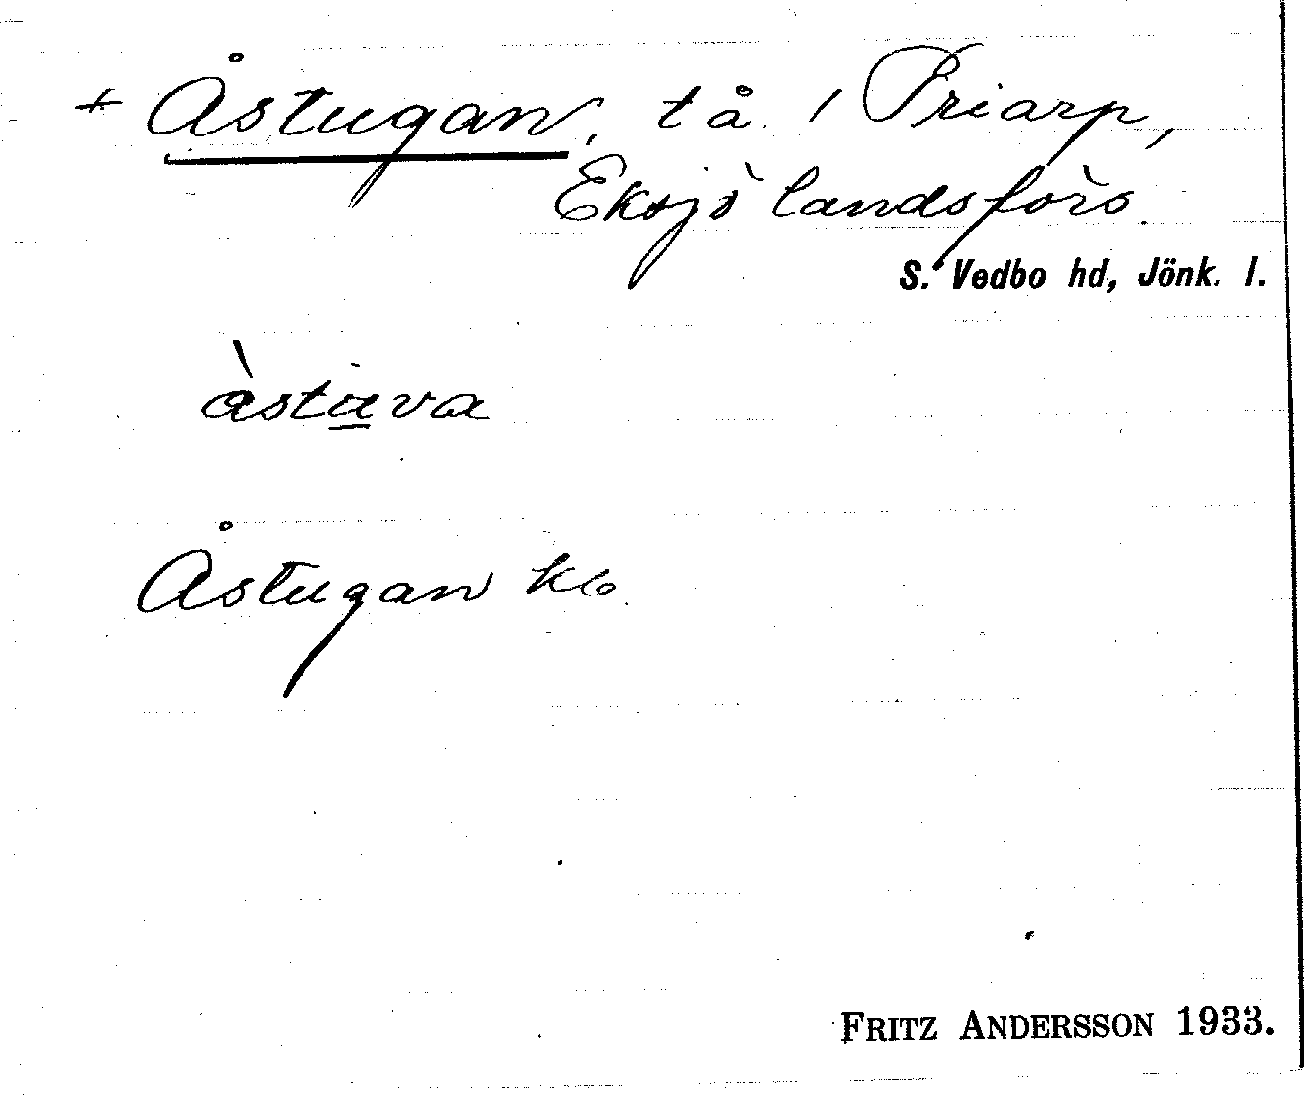 + Åstugan, tå. / Priarp,
Eksjö landsförs.
S. Vedbo hd, Jönk. l.
åstuva
Åstugan kb
FRITZ ANDERSSON 1933.